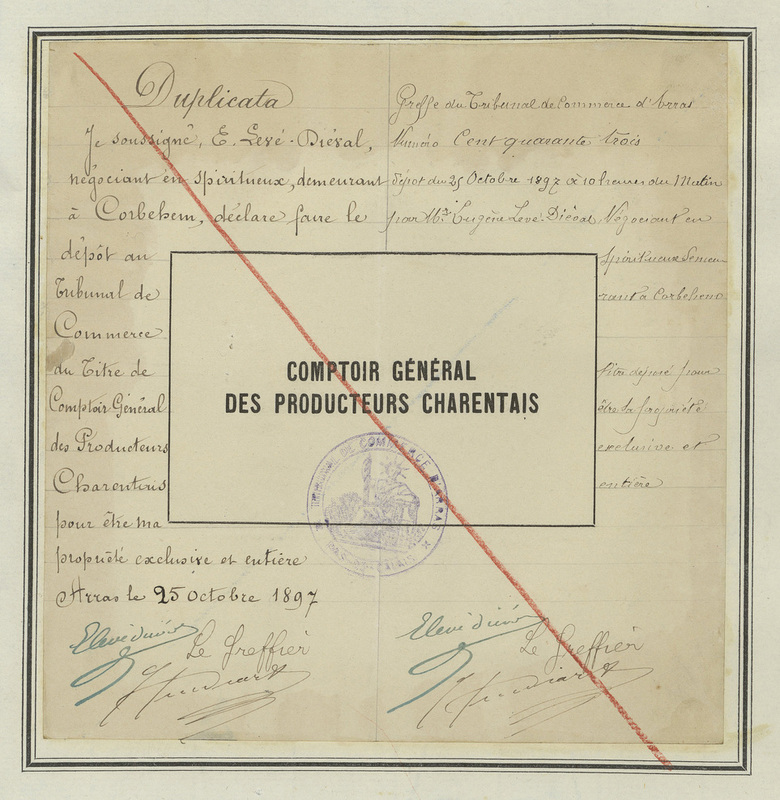 Duplicata
Je soussigné, E. Levé-Diéval,
négociant en spiritueux, demeurant
à Corbehem, déclare faire le
dépôt au
Tribunal de
Commerce
du Titre de
Comptoir Général
des Producteurs
Charentais
pour être ma
propriété exclusive et entière
Arras le 25 Octobre 1897
ELevédiéval
Le Greffier
Greffe du Tribunal de Commerce d'Arras
Numéro Cent quarante trois
dépot du 25 Octobre 1897 à 10 heures du Matin
par Mr. Eugène Levé-Diéval Négociant en
spiritueux demeu
rant à Corbehem
titre déposé pour
être sa propriété
exclusive et
entière
ELevédiéval
Le Greffier
COMPTOIR GÉNÉRAL
DES PRODUCTEURS CHARENTAIS
TRIBUNAL DE COMMERCE D'ARRAS
PAS-DE-CALAIS